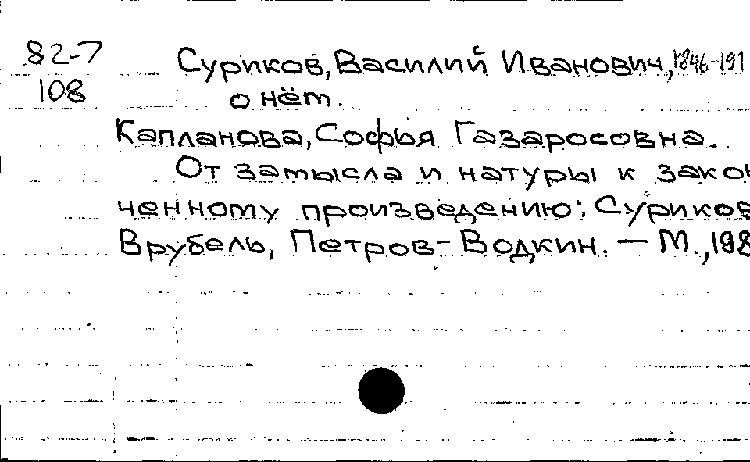 82-7
Суриков, Василий Иванович, 1846-191
108
о нём.
Капланова, Софья Газаросовна.
От замысла и натуры к закон
ченному произведению: Суриков
Врубель, Петров-Водкин. — М., 198